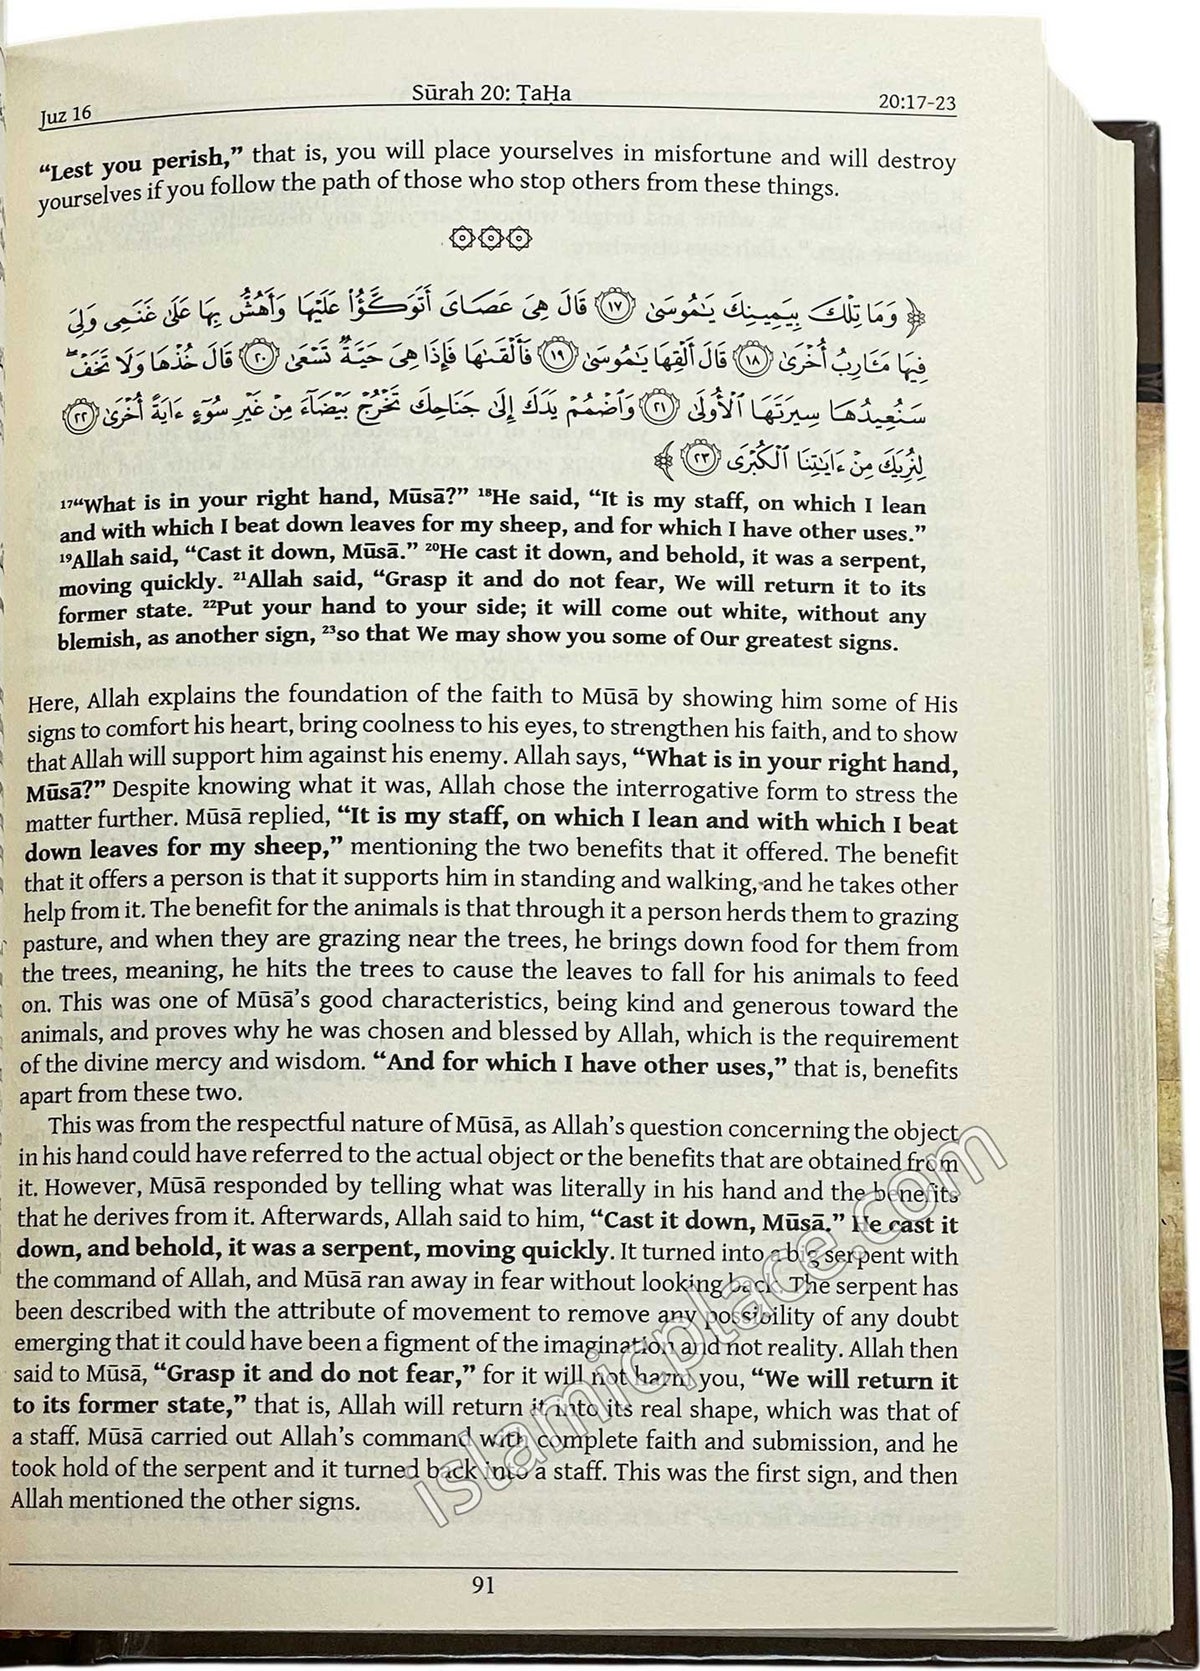 Juz 16
Sūrah 20: ṬaḤa
20:17-23
“Lest you perish,” that is, you will place yourselves in misfortune and will destroy
yourselves if you follow the path of those who stop others from these things.
﴿ وَمَا تِلْكَ بِيَمِينِكَ يَٰمُوسَىٰ ١٧ قَالَ هِىَ عَصَاىَ أَتَوَكَّؤُا۟ عَلَيْهَا وَأَهُشُّ بِهَا عَلَىٰ غَنَمِى وَلِىَ
فِيهَا مَـَٔارِبُ أُخْرَىٰ ١٨ قَالَ أَلْقِهَا يَٰمُوسَىٰ ١٩ فَأَلْقَىٰهَا فَإِذَا هِىَ حَيَّةٌ تَسْعَىٰ ٢٠ قَالَ خُذْهَا وَلَا تَخَفْ ۖ
سَنُعِيدُهَا سِيرَتَهَا ٱلْأُولَىٰ ٢١ وَٱضْمُمْ يَدَكَ إِلَىٰ جَنَاحِكَ تَخْرُجْ بَيْضَآءَ مِنْ غَيْرِ سُوٓءٍ ءَايَةً أُخْرَىٰ ٢٢
لِنُرِيَكَ مِنْ ءَايَٰتِنَا ٱلْكُبْرَى ٢٣ ﴾
¹⁷“What is in your right hand, Mūsā?” ¹⁸He said, “It is my staff, on which I lean
and with which I beat down leaves for my sheep, and for which I have other uses.”
¹⁹Allah said, “Cast it down, Mūsā.” ²⁰He cast it down, and behold, it was a serpent,
moving quickly. ²¹Allah said, “Grasp it and do not fear, We will return it to its
former state. ²²Put your hand to your side; it will come out white, without any
blemish, as another sign, ²³so that We may show you some of Our greatest signs.
Here, Allah explains the foundation of the faith to Mūsā by showing him some of His
signs to comfort his heart, bring coolness to his eyes, to strengthen his faith, and to show
that Allah will support him against his enemy. Allah says, “What is in your right hand,
Mūsā?” Despite knowing what it was, Allah chose the interrogative form to stress the
matter further. Mūsā replied, “It is my staff, on which I lean and with which I beat
down leaves for my sheep,” mentioning the two benefits that it offered. The benefit
that it offers a person is that it supports him in standing and walking, and he takes other
help from it. The benefit for the animals is that through it a person herds them to grazing
pasture, and when they are grazing near the trees, he brings down food for them from
the trees, meaning, he hits the trees to cause the leaves to fall for his animals to feed
on. This was one of Mūsā’s good characteristics, being kind and generous toward the
animals, and proves why he was chosen and blessed by Allah, which is the requirement
of the divine mercy and wisdom. “And for which I have other uses,” that is, benefits
apart from these two.
This was from the respectful nature of Mūsā, as Allah’s question concerning the object
in his hand could have referred to the actual object or the benefits that are obtained from
it. However, Mūsā responded by telling what was literally in his hand and the benefits
that he derives from it. Afterwards, Allah said to him, “Cast it down, Mūsā.” He cast it
down, and behold, it was a serpent, moving quickly. It turned into a big serpent with
the command of Allah, and Mūsā ran away in fear without looking back. The serpent has
been described with the attribute of movement to remove any possibility of any doubt
emerging that it could have been a figment of the imagination and not reality. Allah then
said to Mūsā, “Grasp it and do not fear,” for it will not harm you, “We will return it
to its former state,” that is, Allah will return it into its real shape, which was that of
a staff. Mūsā carried out Allah’s command with complete faith and submission, and he
took hold of the serpent and it turned back into a staff. This was the first sign, and then
Allah mentioned the other signs.
islamicplace.com
91